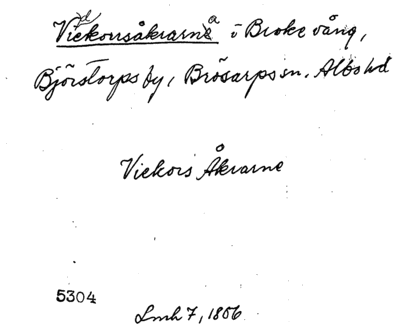 Vickorsåkrarna i Broke vång,
Björstorps by, Brösarps sn. Albo hd
Vickors Åkrarne
5304
Lmh 7, 1806